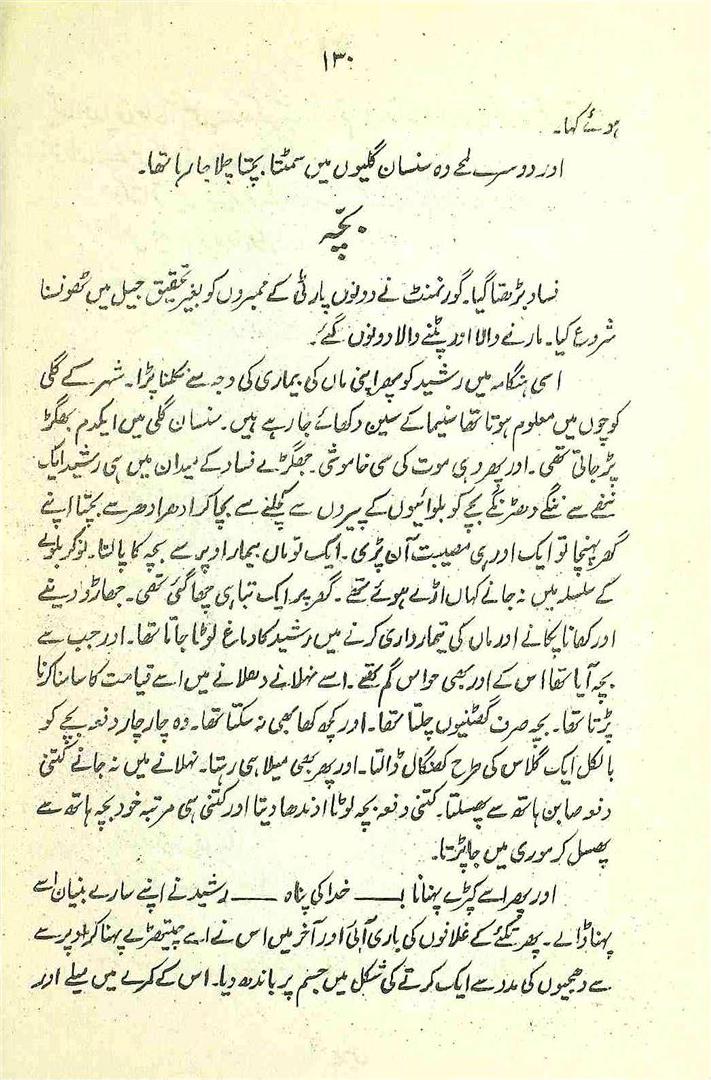 ۱۳۰
ہوئے کہا۔
اور دوسرے لمحے وہ سنسان گلیوں میں سمٹتا بچتا چلا جا رہا تھا۔
بچّہ
فساد بڑھتا گیا۔ گورنمنٹ نے دونوں پارٹی کے ممبروں کو بغیر تحقیق جیل میں ٹھونسنا
شروع کیا۔ مارنے والا اور پٹنے والا دونوں گئے۔
اسی ہنگامہ میں رشید کو پھر اپنی ماں کی بیماری کی وجہ سے نکلنا پڑا۔ شہر کے گلی
کوچوں میں معلوم ہوتا تھا سنیما کے سین دکھائے جا رہے ہیں۔ سنسان گلی میں ایکدم بھگڑ
پڑ جاتی تھی۔ اور پھر وہی موت کی سی خاموشی۔ جھگڑے فساد کے میدان میں ہی رشید ایک
ننھے سے ننگے دھڑنگے بچے کو بلوائیوں کے پیروں سے کچلنے سے بچا کر ادھر ادھر سے بچتا اپنے
گھر پہنچا تو ایک اور ہی مصیبت آن پڑی۔ ایک تو ماں بیمار اوپر سے بچہ کا پالنا۔ نوکر بلوے
کے سلسلہ میں نہ جانے کہاں اڑے ہوئے تھے۔ گھر پر ایک تباہی چھا گئی تھی۔ جھاڑو دینے
اور کھانا پکانے اور ماں کی تیمارداری کرنے میں رشید کا دماغ لوٹا جاتا تھا۔ اور جب سے
بچہ آیا تھا اس کے اور بھی حواس گم تھے۔ اسے نہلانے دھلانے میں اسے قیامت کا سامنا کرنا
پڑتا تھا۔ بچہ صرف گھٹنیوں چلتا تھا۔ اور کچھ کھا بھی نہ سکتا تھا۔ وہ چار چار دفعہ بچے کو
بالکل ایک گلاس کی طرح کھنگال ڈالتا۔ اور پھر بھی میلا ہی رہتا۔ نہلانے میں نہ جانے کتنی
دفعہ صابن ہاتھ سے پھسلتا۔ کتنی دفعہ بچہ لوٹا اوندھا دیتا اور کتنی ہی مرتبہ خود بچہ ہاتھ سے
پھسل کر موری میں جا پڑتا۔
اور پھر اسے کپڑے پہنانا ـــــ خدا کی پناہ ـــــ رشید نے اپنے سارے بنیان اسے
پہنا ڈالے۔ پھر تکئے کے غلافوں کی باری آئی اور آخر میں اس نے اسے چیتھڑے پہنا کر اوپر سے
سے دھجیوں کی مدد سے ایک کرتے کی شکل میں جسم پر باندھ دیا۔ اس کے کمرے میں میلے اور